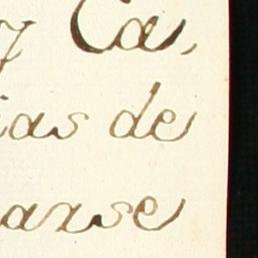 y Ca,
ias de
arse